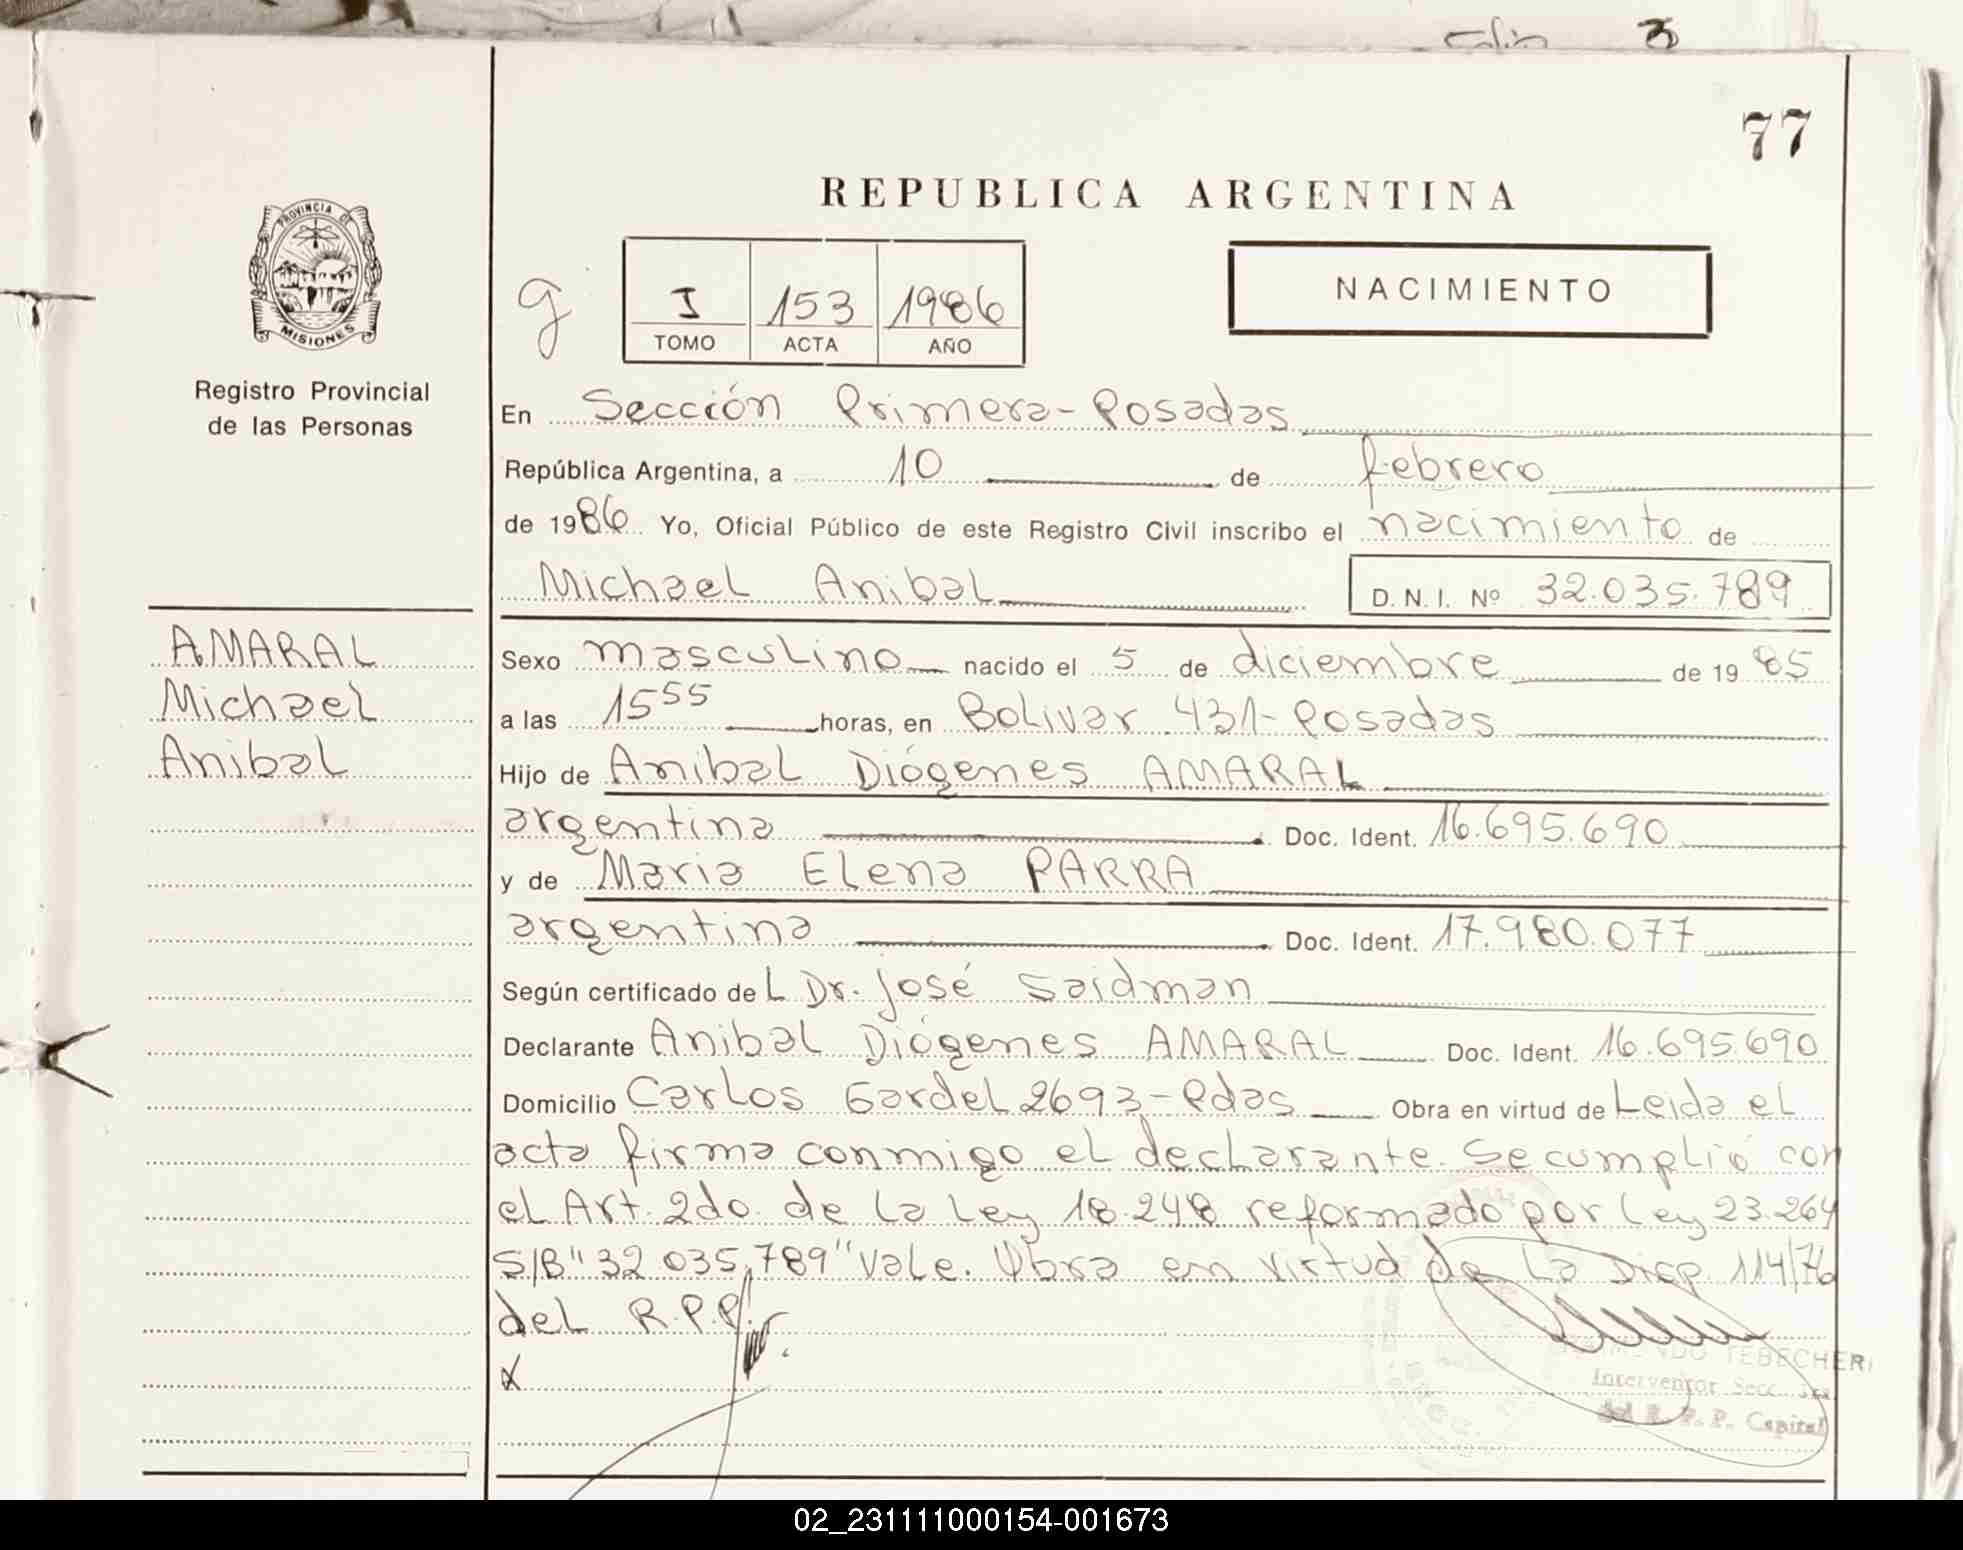 3
77
REPUBLICA ARGENTINA
PROVINCIA DE
MISIONES
Registro Provincial
de las Personas
g
I 153 1986
TOMO ACTA AÑO
NACIMIENTO
En Sección Primera - Posadas
República Argentina, a 10 de febrero
de 1986 Yo, Oficial Público de este Registro Civil inscribo el nacimiento de
Michael Anibal D.N.I. Nº 32.035.789
AMARAL
Michael
Anibal
Sexo masculino nacido el 5 de diciembre de 1985
a las 15 55 horas, en Bolivar 431 - Posadas
Hijo de Anibal Diógenes AMARAL
argentina Doc. Ident. 16.695.690
y de Maria Elena PARRA
argentina Doc. Ident. 17.980.077
Según certificado del Dr. José Saidman
Declarante Anibal Diógenes AMARAL Doc. Ident. 16.695.690
Domicilio Carlos Gardel 2693 - Pdas Obra en virtud de Leida el
acta firma conmigo el declarante. Se cumplió con
el Art. 2do. de la Ley 18.248 reformado por Ley 23.264
S/B "32 035.789" Vale. Obra en virtud de la Disp. 114/76
del R.P.P.
x
TEBECHERI
Interventor Secc. 1ra
del R. P. P. Capital
02_231111000154-001673